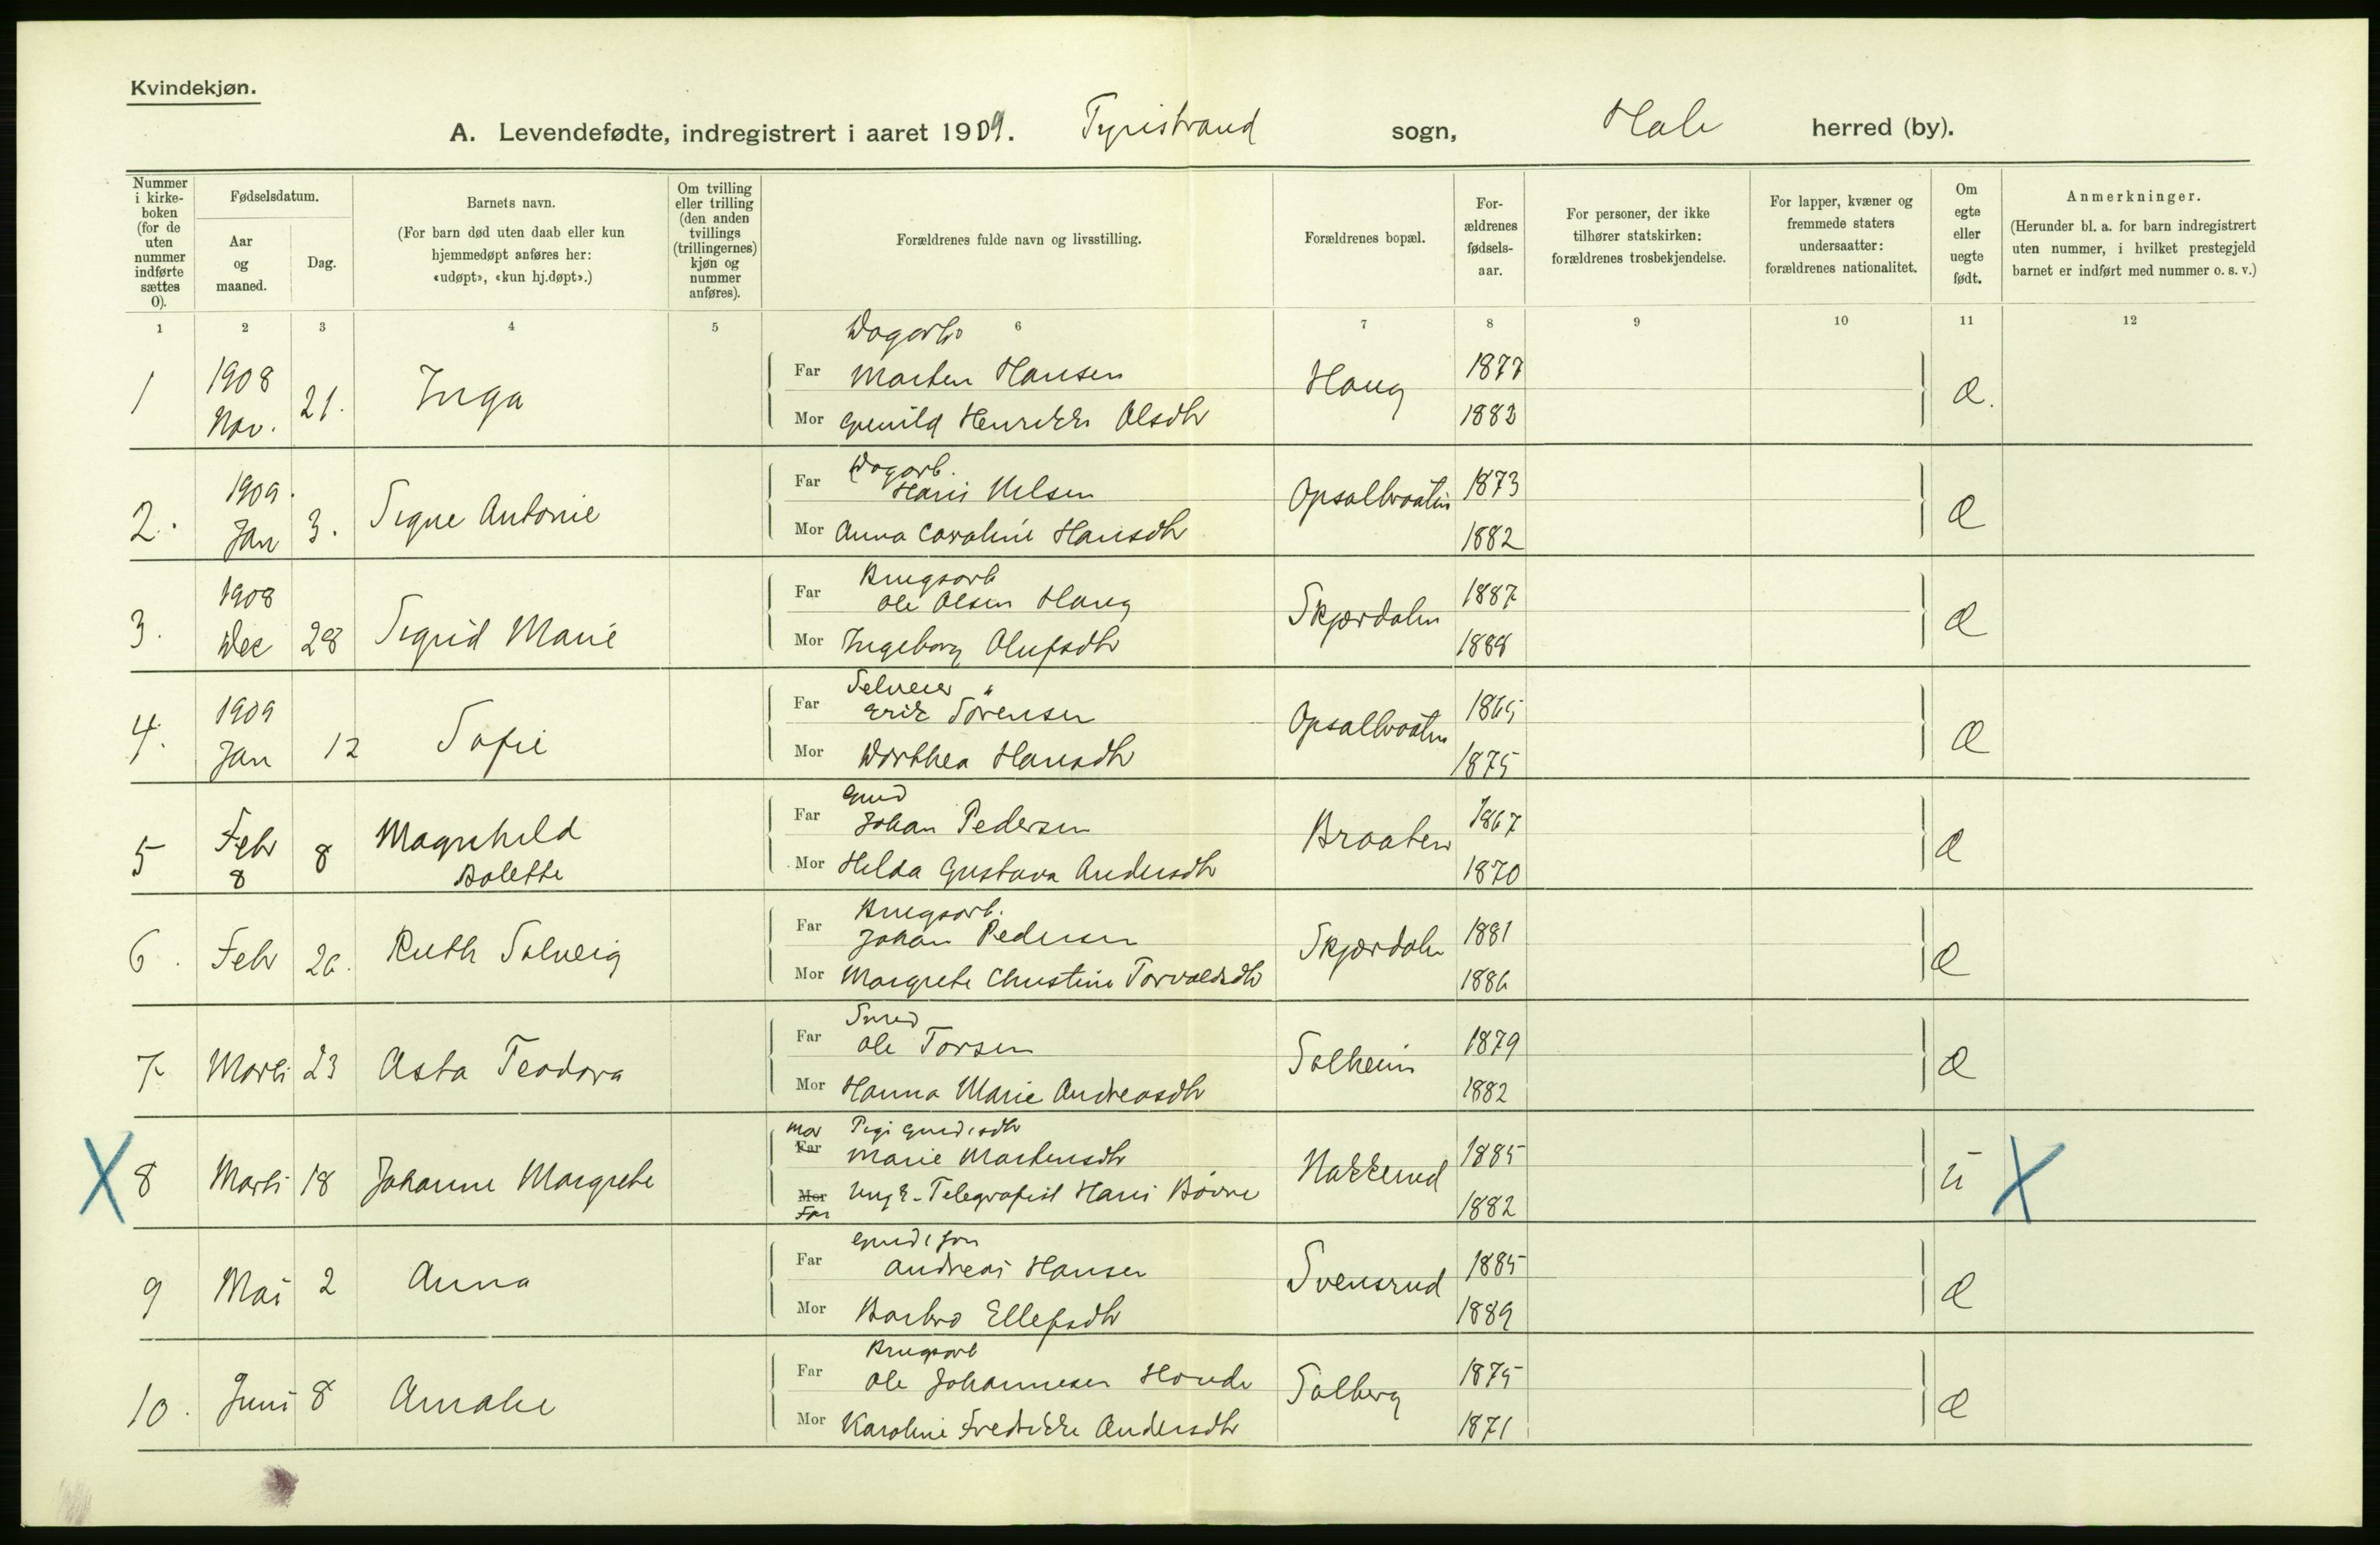 Kvindekjøn.
A. Levendefødte, indregistrert i aaret 1909. Tyristrand sogn, Hole herred (by).
Nummer i kirkeboken (for de uten nummer indførte sættes 0).
Fødselsdatum.
Aar og maaned.
Dag.
Barnets navn.
(For barn død uten daab eller kun hjemmedøpt anføres her: «udøpt», «kun hj.døpt».)
Om tvilling eller trilling (den anden tvillings (trillingernes) kjøn og nummer anføres).
Forældrenes fulde navn og livsstilling.
Forældrenes bopæl.
Forældrenes fødselsaar.
For personer, der ikke tilhører statskirken: forældrenes trosbekjendelse.
For lapper, kvæner og fremmede staters undersaatter: forældrenes nationalitet.
Om egte eller uegte født.
Anmerkninger.
(Herunder bl. a. for barn indregistrert uten nummer, i hvilket prestegjeld barnet er indført med nummer o. s. v.)
1 2 3 4 5 6 7 8 9 10 11 12
Dagarb
1 1908 Nov. 21. Inga Far Marten Hansen Haug 1877 Æ.
Mor Gunild Henrikke Olsdtr 1883
Dagarb.
2. 1909. Jan 3. Signe Antonie Far Hans Nilsen Opsalbraaten 1873 Æ
Mor Anna Caroline Hansdtr 1882
Brugsarb
3. 1908 Dec 28 Sigrid Marie Far Ole Olsen Haug Skjærdalen 1887 Æ
Mor Ingeborg Olufsdtr 1888
Selveier
4. 1909 Jan 12 Sofie Far Erik Sörensen Opsalbraaten 1865 Æ
Mor Dorthea Hansdtr 1875
Gmd
5 Febr 8 8 Magnhild Bolette Far Johan Pedersen Braaten 1867 Æ
Mor Hilda Gustava Andersdtr 1870
Brugsarb.
6. Febr 20. Ruth Solveig Far Johan Pedersen Skjærdalen 1881 Æ
Mor Margrete Christine Torvaldsdtr 1886
Smed
7 Marts 23 Asta Teodora Far Ole Torsen Solheim 1879 Æ
Mor Hanna Marie Andreasdtr 1882
mor Pige Gmdsdtr
X 8 Marts 18 Johanne Margrethe Far Marie Martensdtr Nakkerud 1885 U X
Mor Far Ungk. Telegrafist Hans Bövre 1882
Gmds søn
9 Mai 2 Anna Far Andreas Hansen Svensrud 1885 Æ
Mor Barbro Ellefsdtr 1889
Brugsarb
10. Juni 8 Amalie Far Ole Johannesen Honde Solberg 1875 Æ
Mor Karoline Fredrikke Andersdtr 1871